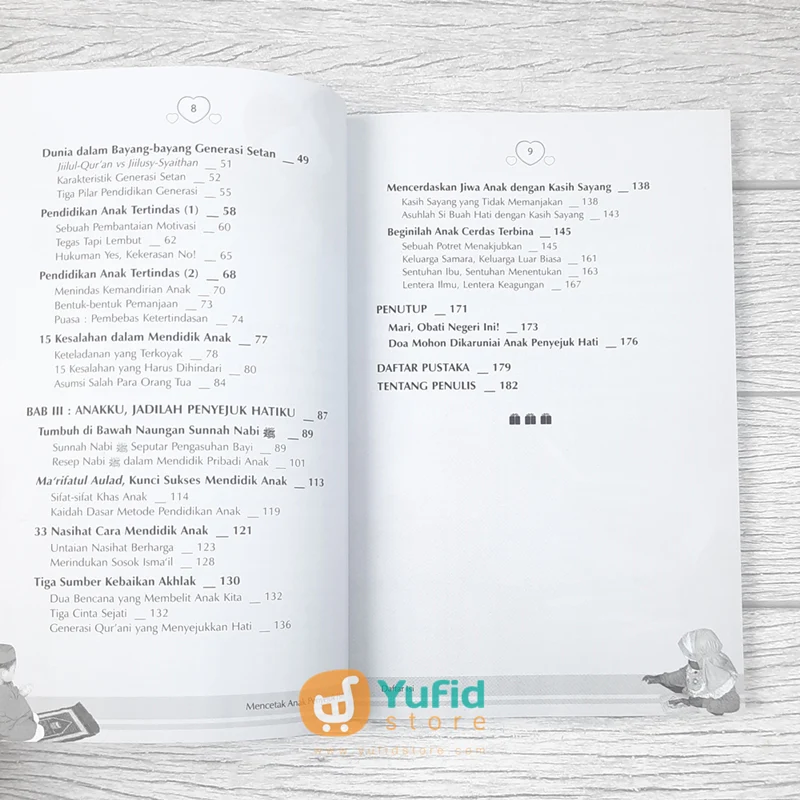 8
Dunia dalam Bayang-bayang Generasi Setan __ 49
Jiilul-Qur'an vs Jiilusy-Syaithan __ 51
Karakteristik Generasi Setan __ 52
Tiga Pilar Pendidikan Generasi __ 55
Pendidikan Anak Tertindas (1) __ 58
Sebuah Pembantaian Motivasi __ 60
Tegas Tapi Lembut __ 62
Hukuman Yes, Kekerasan No! __ 65
Pendidikan Anak Tertindas (2) __ 68
Menindas Kemandirian Anak __ 70
Bentuk-bentuk Pemanjaan __ 73
Puasa : Pembebas Ketertindasan __ 74
15 Kesalahan dalam Mendidik Anak __ 77
Keteladanan yang Terkoyak __ 78
15 Kesalahan yang Harus Dihindari __ 80
Asumsi Salah Para Orang Tua __ 84
BAB III : ANAKKU, JADILAH PENYEJUK HATIKU __ 87
Tumbuh di Bawah Naungan Sunnah Nabi ﷺ __ 89
Sunnah Nabi ﷺ Seputar Pengasuhan Bayi __ 89
Resep Nabi ﷺ dalam Mendidik Pribadi Anak __ 101
Ma'rifatul Aulad, Kunci Sukses Mendidik Anak __ 113
Sifat-sifat Khas Anak __ 114
Kaidah Dasar Metode Pendidikan Anak __ 119
33 Nasihat Cara Mendidik Anak __ 121
Untaian Nasihat Berharga __ 123
Merindukan Sosok Isma'il __ 128
Tiga Sumber Kebaikan Akhlak __ 130
Dua Bencana yang Membelit Anak Kita __ 132
Tiga Cinta Sejati __ 132
Generasi Qur'ani yang Menyejukkan Hati __ 136
Mencetak Anak
9
Mencerdaskan Jiwa Anak dengan Kasih Sayang __ 138
Kasih Sayang yang Tidak Memanjakan __ 138
Asuhlah Si Buah Hati dengan Kasih Sayang __ 143
Beginilah Anak Cerdas Terbina __ 145
Sebuah Potret Menakjubkan __ 145
Keluarga Samara, Keluarga Luar Biasa __ 161
Sentuhan Ibu, Sentuhan Menentukan __ 163
Lentera Ilmu, Lentera Keagungan __ 167
PENUTUP __ 171
Mari, Obati Negeri Ini! __ 173
Doa Mohon Dikaruniai Anak Penyejuk Hati __ 176
DAFTAR PUSTAKA __ 179
TENTANG PENULIS __ 182
Daftar Isi
Yufid
store
www.yufidstore.com